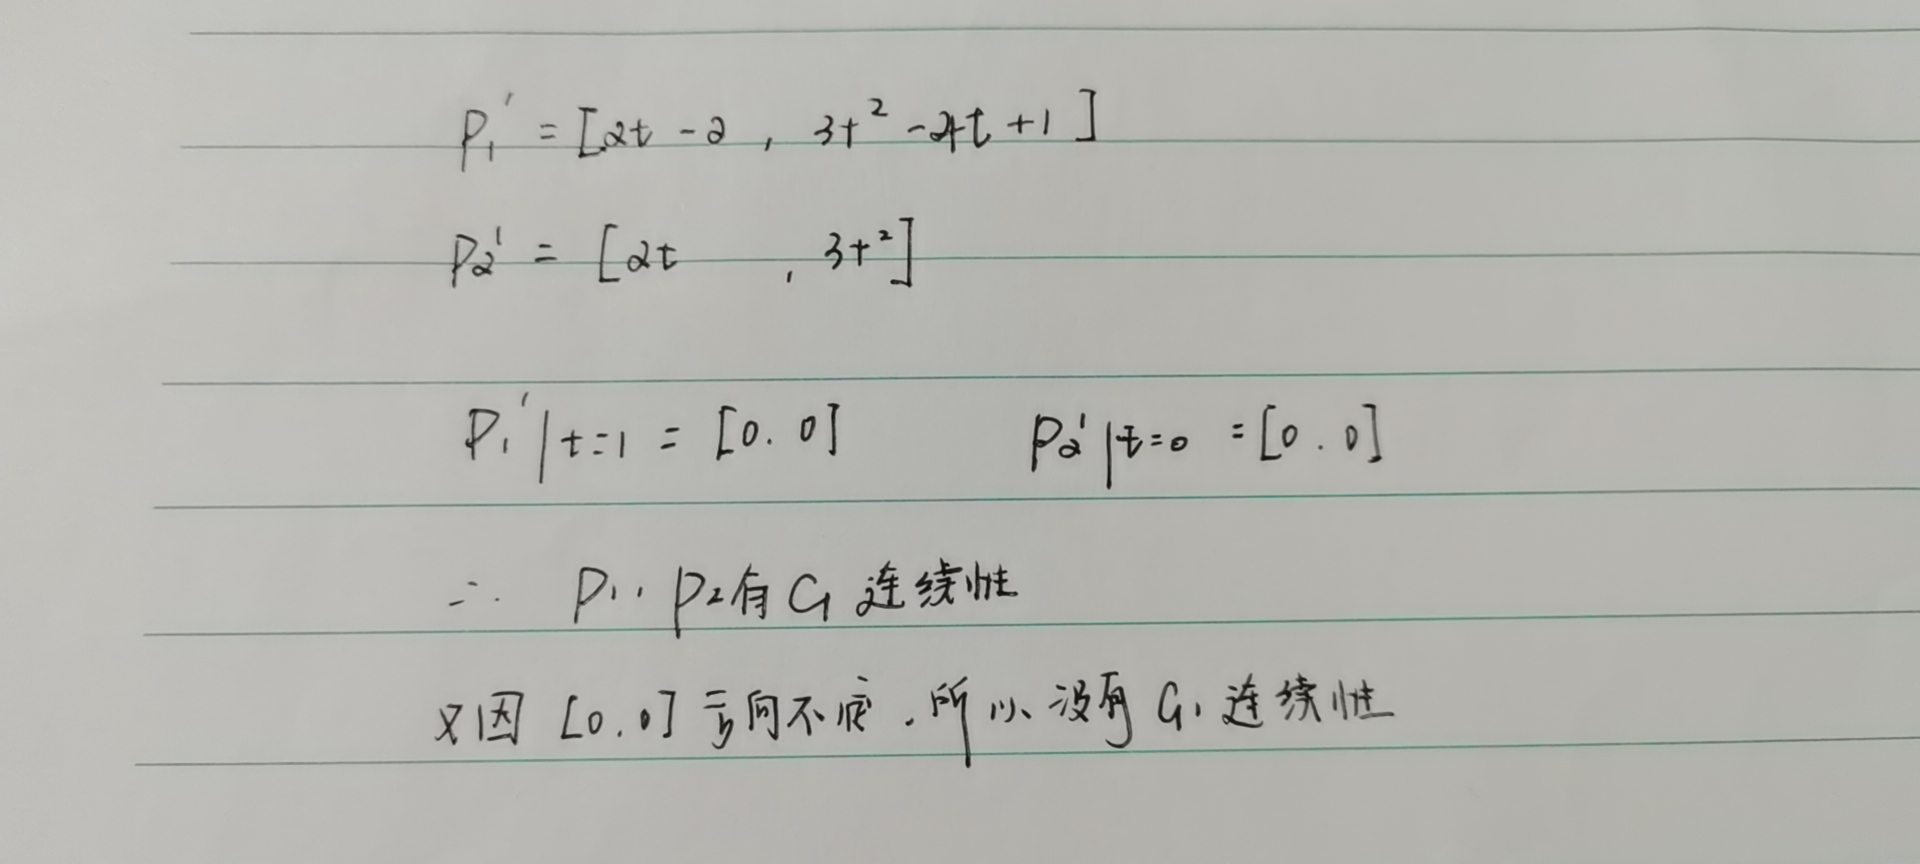 P₁' = [2t - 2, 3t² - 4t + 1]
P₂' = [2t , 3t²]
P₁'|t=1 = [0. 0] P₂'|t=0 = [0. 0]
∴ P₁, P₂有 C₁ 连续性
又因 [0. 0] 方向不定. 所以没有 G₁ 连续性